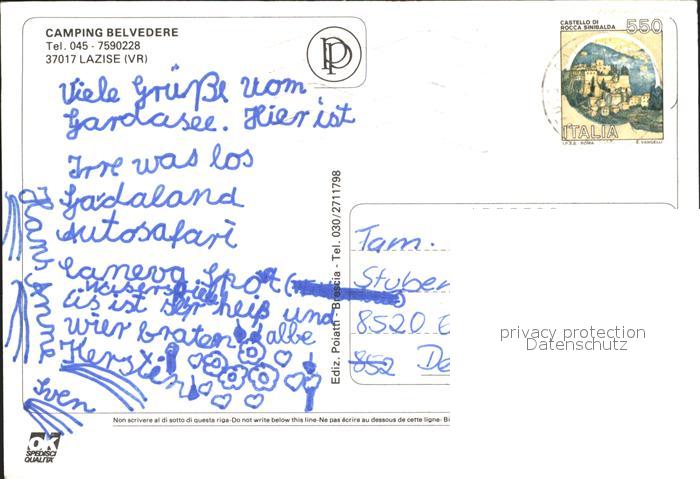 CAMPING BELVEDERE
Tel. 045 - 7590228
37017 LAZISE (VR)
P
Viele Grüße vom
Gardasee. Hier ist
Irre was los
Gadaland
Autosafari
Caneva Sport
Eis ist sehr heiß und
wier braten
albe
Kerstin
Sven
Hans
Anne
ok
SPEDISCI
QUALITA'
Ediz. Poiatti - Brescia - Tel. 030/2711798
CASTELLO DI
ROCCA SINIBALDA
550
ITALIA
I.P.Z.S. - ROMA
E. VANGELLI
Fam.
Stuben
8520 E
852 De
privacy protection
Datenschutz
Non scrivere al di sotto di questa riga-Do not write below this line-Ne pas écrire au dessous de cette ligne-